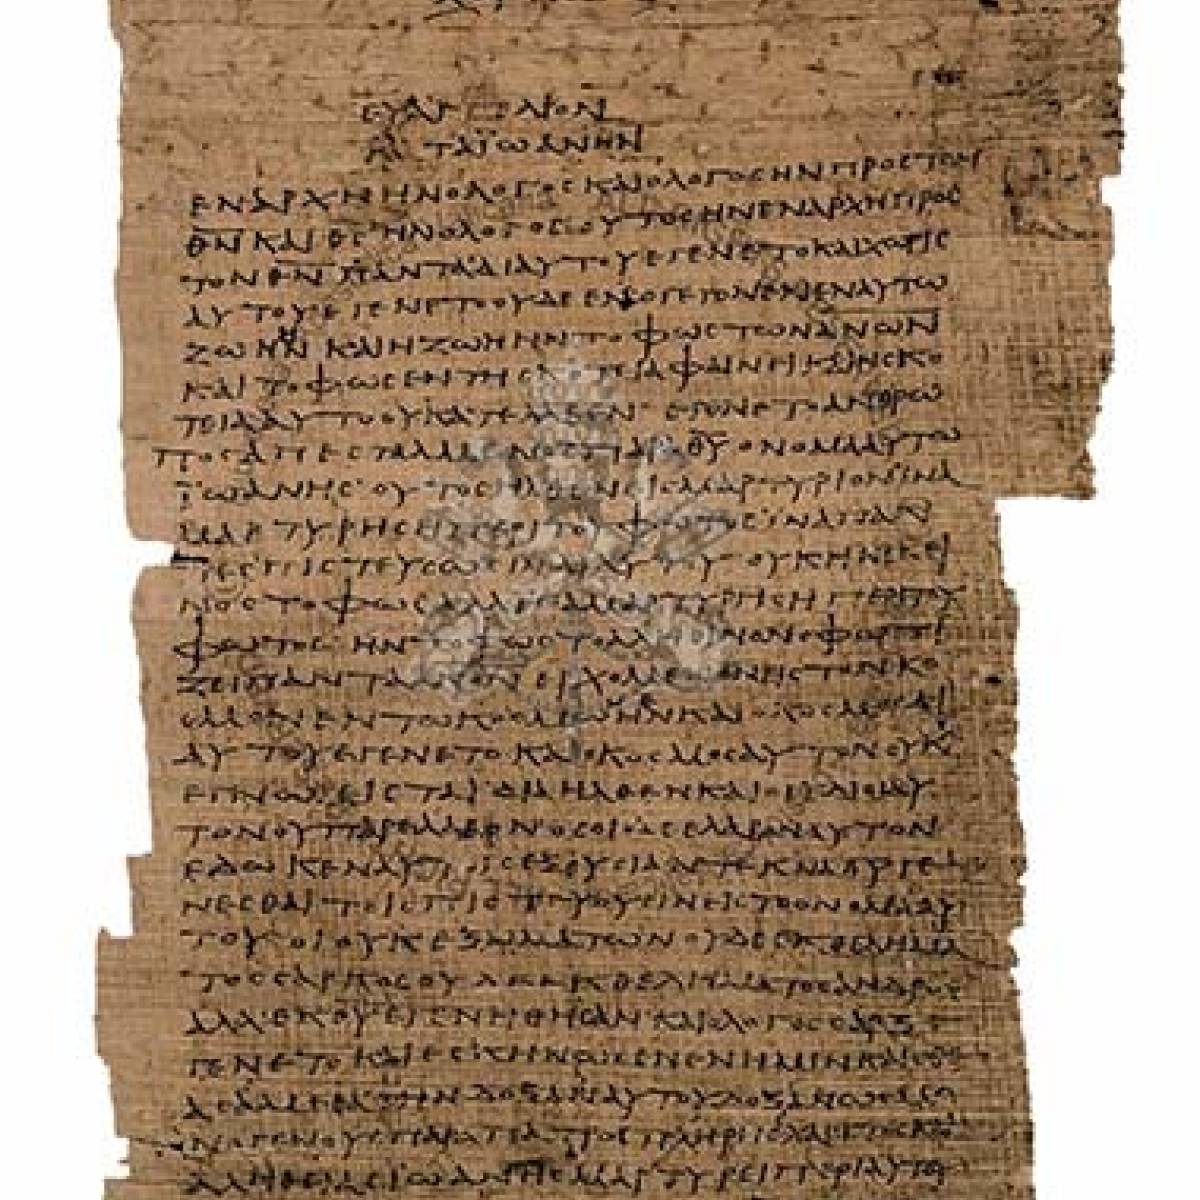 ΕΥΑΓΓΕΛΙΟΝ
ΚΑΤΑΪΩΑΝΗΝ
ΕΝΑΡΧΗΗΝΟΛΟΓΟϹΚΑΙΟΛΟΓΟϹΗΝΠΡΟϹΤΟΝ
Θ̅Ν̅ΚΑΙΘ̅Ϲ̅ΗΝΟΛΟΓΟϹΟΥΤΟϹΗΝΕΝΑΡΧΗΠΡΟϹ
ΤΟΝΘ̅Ν̅ΠΑΝΤΑΔΙΑΥΤΟΥΕΓΕΝΕΤΟΚΑΙΧΩΡΙϹ
ΑΥΤΟΥΕΓΕΝΕΤΟΟΥΔΕΕΝ·ΟΓΕΓΟΝΕΝΕΝΑΥΤΩ
ΖΩΗΗΝΚΑΙΗΖΩΗΗΝΤΟΦΩϹΤΩΝΑ̅Ν̅Ω̅Ν̅
ΚΑΙΤΟΦΩϹΕΝΤΗϹΚΟΤΙΑΦΑΙΝΕΙΗϹΚΟ
ΤΕΙΑΑΥΤΟΟΥΚΑΤΕΛΑΒΕΝ·ΕΓΕΝΕΤΟΑΝΘΡΩ
ΠΟϹΑΠΕϹΤΑΛΜΕΝΟϹΠΑΡΑΘ̅Υ̅ΟΝΟΜΑΑΥΤΩ
ΪΩΑΝΗϹ·ΟΥΤΟϹΗΛΘΕΝΕΙϹΜΑΡΤΥΡΙΟΝΪΝΑ
ΜΑΡΤΥΡΗϹΕΙΠΕΡΙΤΟΥΦΩΤΟϹΪΝΑΠΑΝ
ΤΕϹΠΙϹΤΕΥϹΩϹΙΝΔΙΑΥΤΟΥΟΥΚΗΝΕΚΕΙ
ΝΟϹΤΟΦΩϹΑΛΛΪΝΑΜΑΡΤΥΡΗϹΗΠΕΡΙΤΟΥ
ΦΩΤΟϹ·ΗΝΤΟΦΩϹΤΟΑΛΗΘΙΝΟΝΟΦΩΤΙ
ΖΕΙΠΑΝΤΑΑ̅Ν̅Ο̅Ν̅ΕΡΧΟΜΕΝΟΝΕΙϹΤΟΝΚΟ
ϹΜΟΝΕΝΤΩΚΟϹΜΩΗΝΚΑΙΟΚΟϹΜΟϹΔΙ
ΑΥΤΟΥΕΓΕΝΕΤΟΚΑΙΟΚΟϹΜΟϹΑΥΤΟΝΟΥΚ
ΕΓΝΩ·ΕΙϹΤΑΪΔΙΑΗΛΘΕΝΚΑΙΟΙΪΔΙΟΙΑΥ
ΤΟΝΟΥΠΑΡΕΛΑΒΟΝ·ΟϹΟΙΔΕΕΛΑΒΟΝΑΥΤΟΝ
ΕΔΩΚΕΝΑΥΤΟΙϹΕΞΟΥϹΙΑΝΤΕΚΝΑΘ̅Υ̅ΓΕ
ΝΕϹΘΑΙΤΟΙϹΠΙϹΤΕΥΟΥϹΙΝΕΙϹΤΟΟΝΟΜΑΑΥ
ΤΟΥ·ΟΙΟΥΚΕΞΑΙΜΑΤΩΝΟΥΔΕΕΚΘΕΛΗΜΑ
ΤΟϹϹΑΡΚΟϹΟΥΔΕΕΚΘΕΛΗΜΑΤΟϹΑΝΔΡΟϹ
ΑΛΛΑΕΚΘ̅Υ̅ΕΓΕΝΗΘΗϹΑΝΚΑΙΟΛΟΓΟϹϹΑΡΞΕ
ΓΕΝΕΤΟΚΑΙΕϹΚΗΝΩϹΕΝΕΝΗΜΙΝΚΑΙΕΘΕ
ΑϹΑΜΕΘΑΤΗΝΔΟΞΑΝΑΥΤΟΥΔΟΞΑΝΩϹΜΟ
ΝΟΓΕΝΟΥϹΠΑΡΑΠΑΤΡΟϹΠΛΗΡΗϹΧΑΡΙΤΟϹΚΑΙ
ΑΛΗΘΕΙΑϹΪΩΑΝΗϹΜΑΡΤΥΡΕΙΠΕΡΙΑΥΤΟΥ